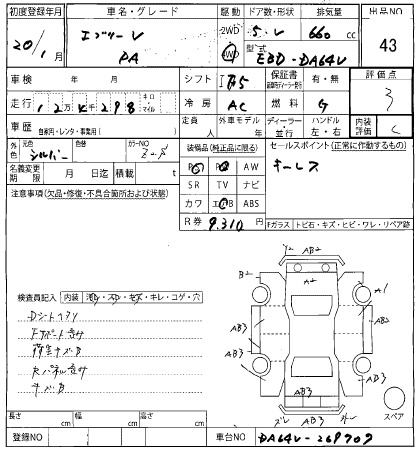 初度登録年月 車名・グレード 駆動 ドア数・形状 排気量 出品NO
20/1 エブリーV PA 2WD 4WD 5.V 660 cc 43
型式 EBD-DA64V
車検 年 月 シフト 保証書 有・無 評価点
走行 12万4千298 キロ マイル 冷房 AC 燃料 G 3
車歴 自家用・レンタ・事業用( ) 定員 人 外車モデル 年 ディーラー・並行 ハンドル 左・右 内装評価 C
外色 元色 シルバー 色替 カラーNO Z2S
装備品(純正品に限る) セールスポイント(正常に作動するもの)
PS PW AW キーレス
名義変更期限 月 日迄 積載 t SR TV ナビ
注意事項(欠品・修復・不具合箇所および状態) カワ エAB ABS
R券 9,310 Fガラス トビ石・キズ・ヒビ・ワレ・リペア跡
Y2 AB2
B2 A2 A1
検査員記入 内装 汚レ・スレ・キズ・キレ・コゲ・穴
AB3 AB2
Dシートヘタリ
AB3
荷室キズB
AB3 AB3
キズB
AB3
スペア
長さ cm 幅 cm 高さ cm
登録NO 車台NO DA64V-268709